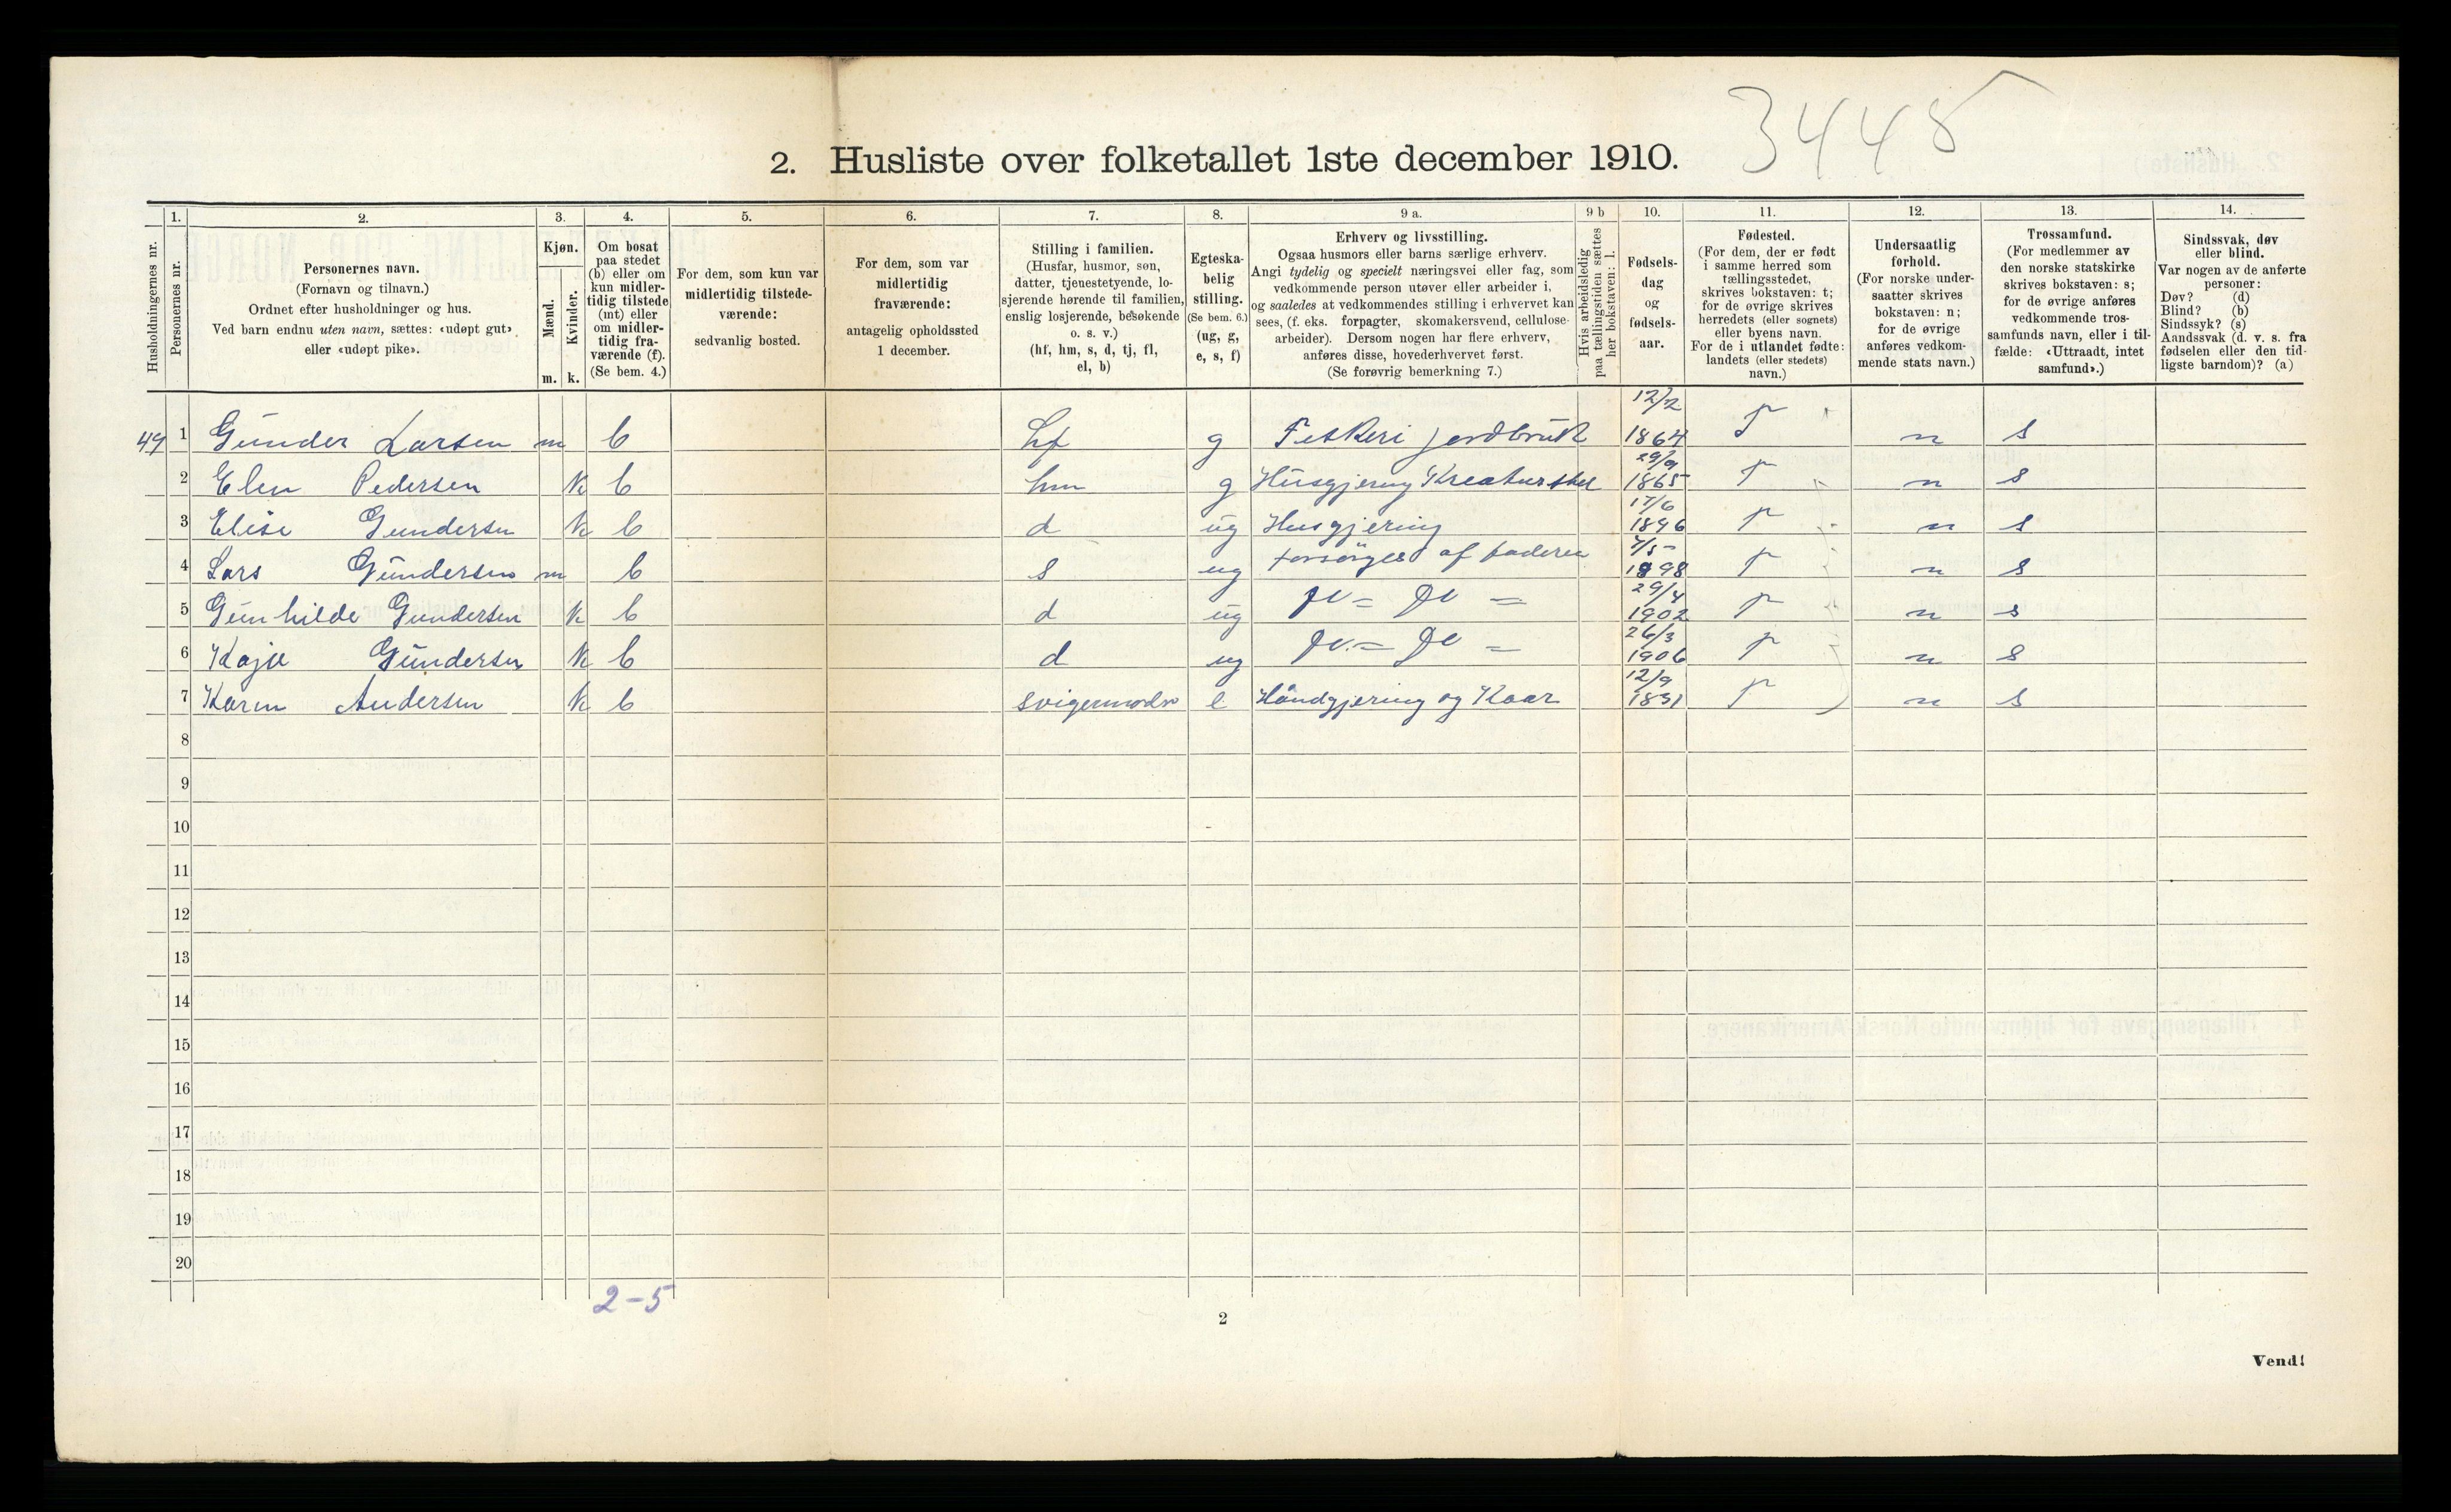 3448
2. Husliste over folketallet 1ste december 1910.
Husholdningernes nr.
1.
Personernes nr.
2.
Personernes navn.
(Fornavn og tilnavn.)
Ordnet efter husholdninger og hus.
Ved barn endnu uten navn, sættes: «udøpt gut»
eller «udøpt pike».
3.
Kjøn.
Mænd.
Kvinder.
m. k.
4.
Om bosat
paa stedet
(b) eller om
kun midler-
tidig tilstede
(mt) eller
om midler-
tidig fra-
værende (f).
(Se bem. 4.)
5.
For dem, som kun var
midlertidig tilstede-
værende:
sedvanlig bosted.
6.
For dem, som var
midlertidig
fraværende:
antagelig opholdssted
1 december.
7.
Stilling i familien.
(Husfar, husmor, søn,
datter, tjenestetyende, lo-
sjerende hørende til familien,
enslig losjerende, besøkende
o. s. v.)
(hf, hm, s, d, tj, fl,
el, b)
8.
Egteska-
belig
stilling.
(Se bem. 6.)
(ug, g,
e, s, f)
9 a.
Erhverv og livsstilling.
Ogsaa husmors eller barns særlige erhverv.
Angi tydelig og specielt næringsvei eller fag, som
vedkommende person utøver eller arbeider i,
og saaledes at vedkommendes stilling i erhvervet kan
sees, (f. eks. forpagter, skomakersvend, cellulose-
arbeider). Dersom nogen har flere erhverv,
anføres disse, hovederhvervet først.
(Se forøvrig bemerkning 7.)
9 b
Hvis arbeidsledig
paa tællingstiden sættes
her bokstaven: l.
10.
Fødsels-
dag
og
fødsels-
aar.
11.
Fødested.
(For dem, der er født
i samme herred som
tællingsstedet,
skrives bokstaven: t;
for de øvrige skrives
herredets (eller sognets)
eller byens navn.
For de i utlandet fødte:
landets (eller stedets)
navn.)
12.
Undersaatlig
forhold.
(For norske under-
saatter skrives
bokstaven: n;
for de øvrige
anføres vedkom-
mende stats navn.)
13.
Trossamfund.
(For medlemmer av
den norske statskirke
skrives bokstaven: s;
for de øvrige anføres
vedkommende tros-
samfunds navn, eller i til-
fælde: «Uttraadt, intet
samfund».)
14.
Sindssvak, døv
eller blind.
Var nogen av de anførte
personer:
Døv? (d)
Blind? (b)
Sindssyk? (s)
Aandssvak (d. v. s. fra
fødselen eller den tid-
ligste barndom)? (a)
49 1 Gunder Larsen m b hf g Fiskeri jordbruk 12/2 1864 t n s
2 Elen Pedersen k b hm g Husgjering Kreaturstel 29/9 1865 t n s
3 Elise Gundersen k b d ug Husgjering 17/6 1896 t n s
4 Lars Gundersen m b s ug forsörges af faderen 7/5 1898 t n s
5 Gunhilde Gundersen k b d ug Do = Do = 29/4 1902 t n s
6 Kaja Gundersen k b d ug Do. = Do = 26/3 1906 t n s
7 Karen Andersen k b svigermoder e Håndgjering og Kaar 12/9 1831 t n s
8
9
10
11
12
13
14
15
16
17
18
19
20
2-5
2
Vend!